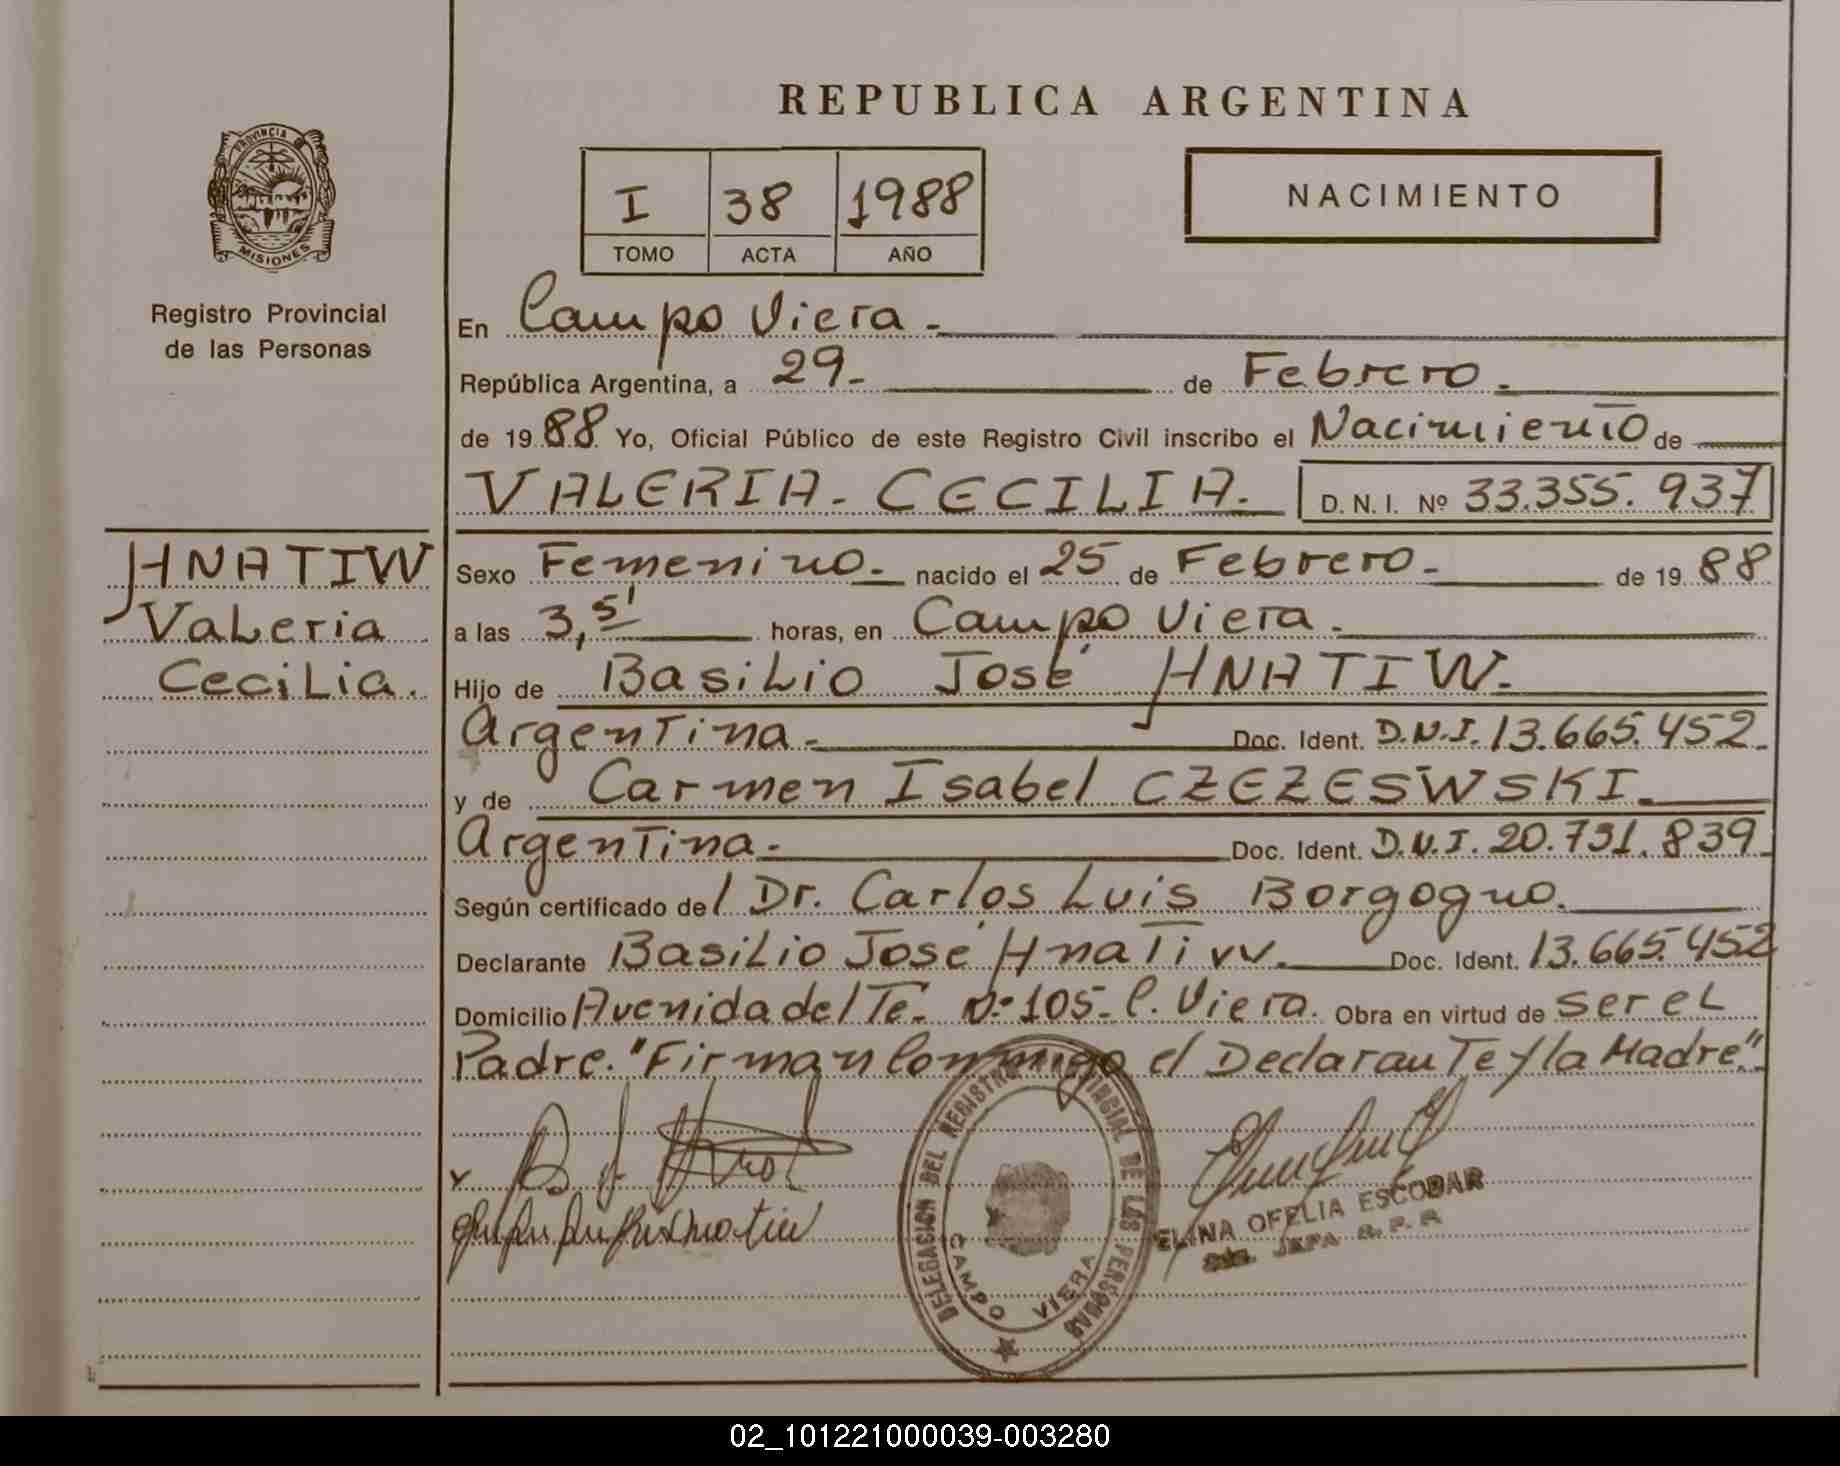 REPUBLICA ARGENTINA
PROVINCIA
MISIONES
Registro Provincial
de las Personas
I 38 1988
TOMO ACTA AÑO
NACIMIENTO
En Campo Viera.
República Argentina, a 29 de Febrero.
de 19 88 Yo, Oficial Público de este Registro Civil inscribo el Nacimiento de
VALERIA. CECILIA. D. N. I. Nº 33.355.937
HNATIW
Valeria
Cecilia.
Sexo Femenino. nacido el 25 de Febrero. de 19 88
a las 3,5' horas, en Campo Viera.
Hijo de Basilio José HNATIW.
Argentina. Doc. Ident. D.N.I. 13.665.452.
y de Carmen Isabel CZEZESWSKI.
Argentina. Doc. Ident. D.N.I. 20.731.839.
Según certificado del Dr. Carlos Luis Borgogno.
Declarante Basilio José Hnatiw. Doc. Ident. 13.665.452
Domicilio Avenida del Té. Nº 105. C. Viera. Obra en virtud de ser el
Padre. "Firman Conmigo el Declarante y la Madre".
DELEGACION DEL REGISTRO PROVINCIAL DE LAS PERSONAS
CAMPO VIERA
ELINA OFELIA ESCOBAR
JEFA R. P. P.
02_101221000039-003280